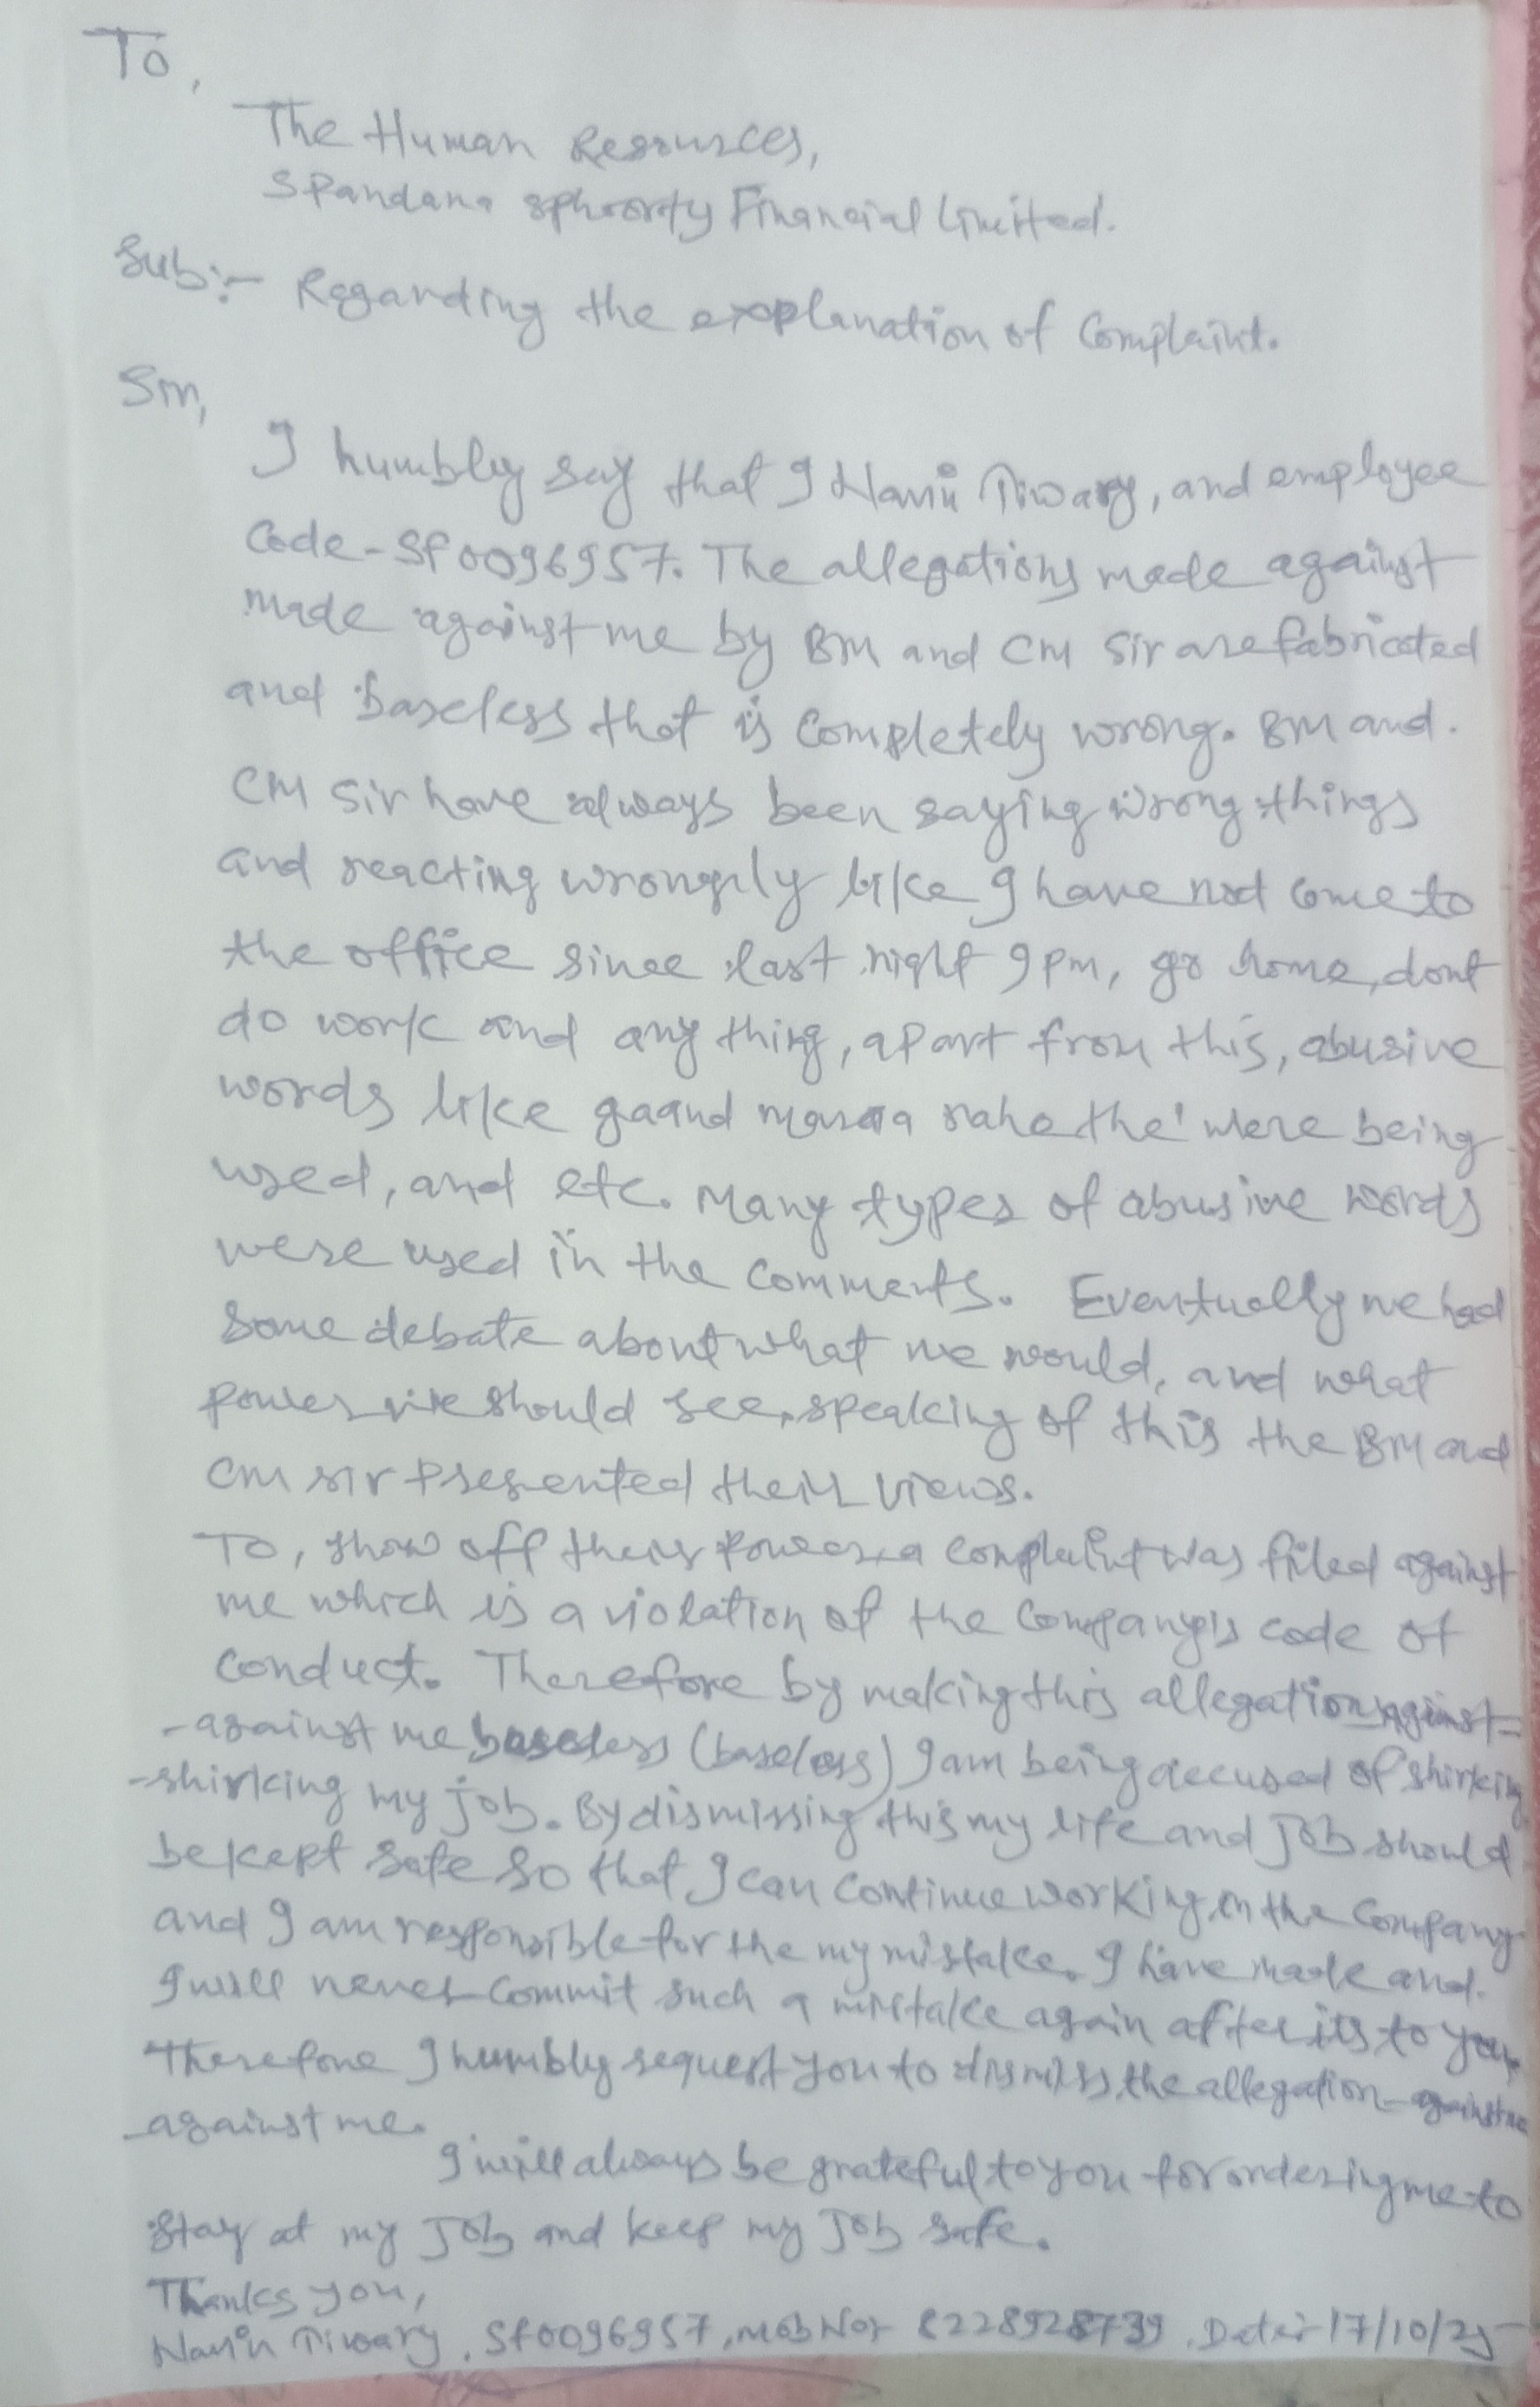 To,
The Human Resources,
Spandana sphoorty Financial Limited.
Sub:- Regarding the explanation of Complaint.
Sir,
I humbly say that I Navin Tiwary, and employee
Code-Sf0096957. The allegations made against
made against me by BM and CM Sir are fabricated
and baseless that is Completely wrong. BM and.
CM Sir have always been saying wrong things
and reacting wrongly like I have not come to
the office since last night 9pm, go home, dont
do work and any thing, apart from this, abusive
words like gaand maraa rahe the' were being
used, and etc. Many types of abusive words
were used in the comments. Eventually we had
some debate about what we would, and what
power we should see, speaking of this the BM and
CM sir presented their views.
To, show off their power, a complaint was filed against
me which is a violation of the Company's code of
conduct. Therefore by making this allegation against-
-against me baseless (baseless) I am being accused of shirking
-shirking my job. By dismissing this my life and Job should
be kept safe so that I can continue working in the Company
and I am responsible for the my mistake. I have made and.
I will never commit such a mistake again after its to you.
Therefore I humbly request you to dismiss the allegation- against me
-against me.
I will always be grateful to you for ordering me to
stay at my Job and keep my Job safe.
Thanks you,
Navin Tiwary, Sf0096957, Mob No: 8228928739. Date:- 17/10/25